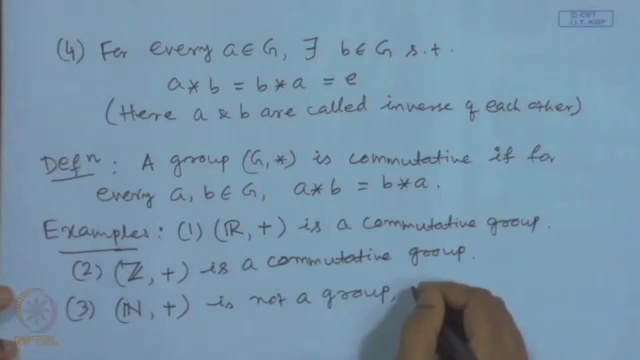 © CET
I.I.T. KGP
(4) For every a ∈ G, ∃ b ∈ G s.t.
a * b = b * a = e
(Here a & b are called inverse of each other)
Defⁿ : A group (G, *) is commutative if for
every a, b ∈ G, a * b = b * a.
Examples : (1) (ℝ, +) is a commutative group.
(2) (ℤ, +) is a commutative group.
(3) (ℕ, +) is not a group,
NPTEL